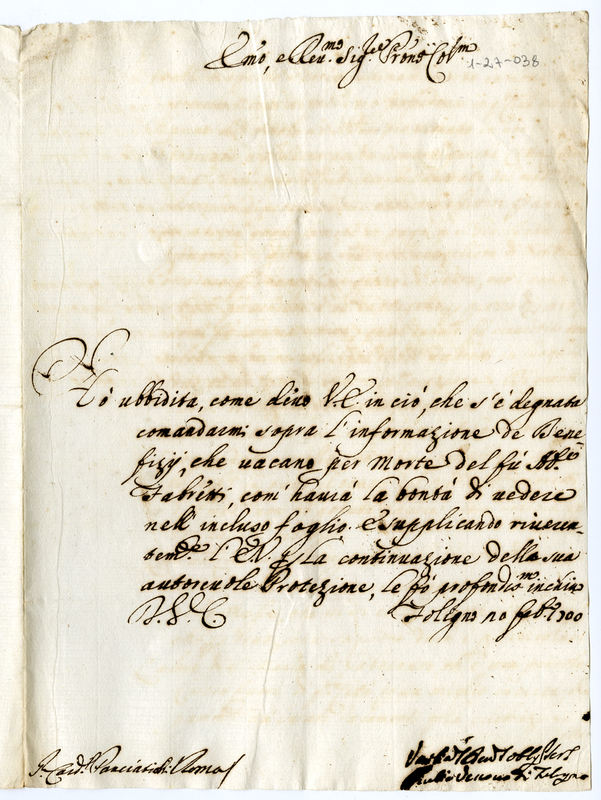 Emo, e Reu.mo Sig.re Prone Col.mo
1-27-038
Hò ubbidita, come deuo V.E. in ciò, che s'è degnata
comandarmi sopra l'informazione de Bene-
fizij, che uacano per Morte del fù Ab.e
com' haurà la bontà di uedere
nell' incluso foglio. E supplicando riueren-
tem.te l'E.V. la continuazione della sua
autoreuole Protezione, le fò profondis.mo inchino
Foligno
Card.l Panciatichi Roma
di Foligno